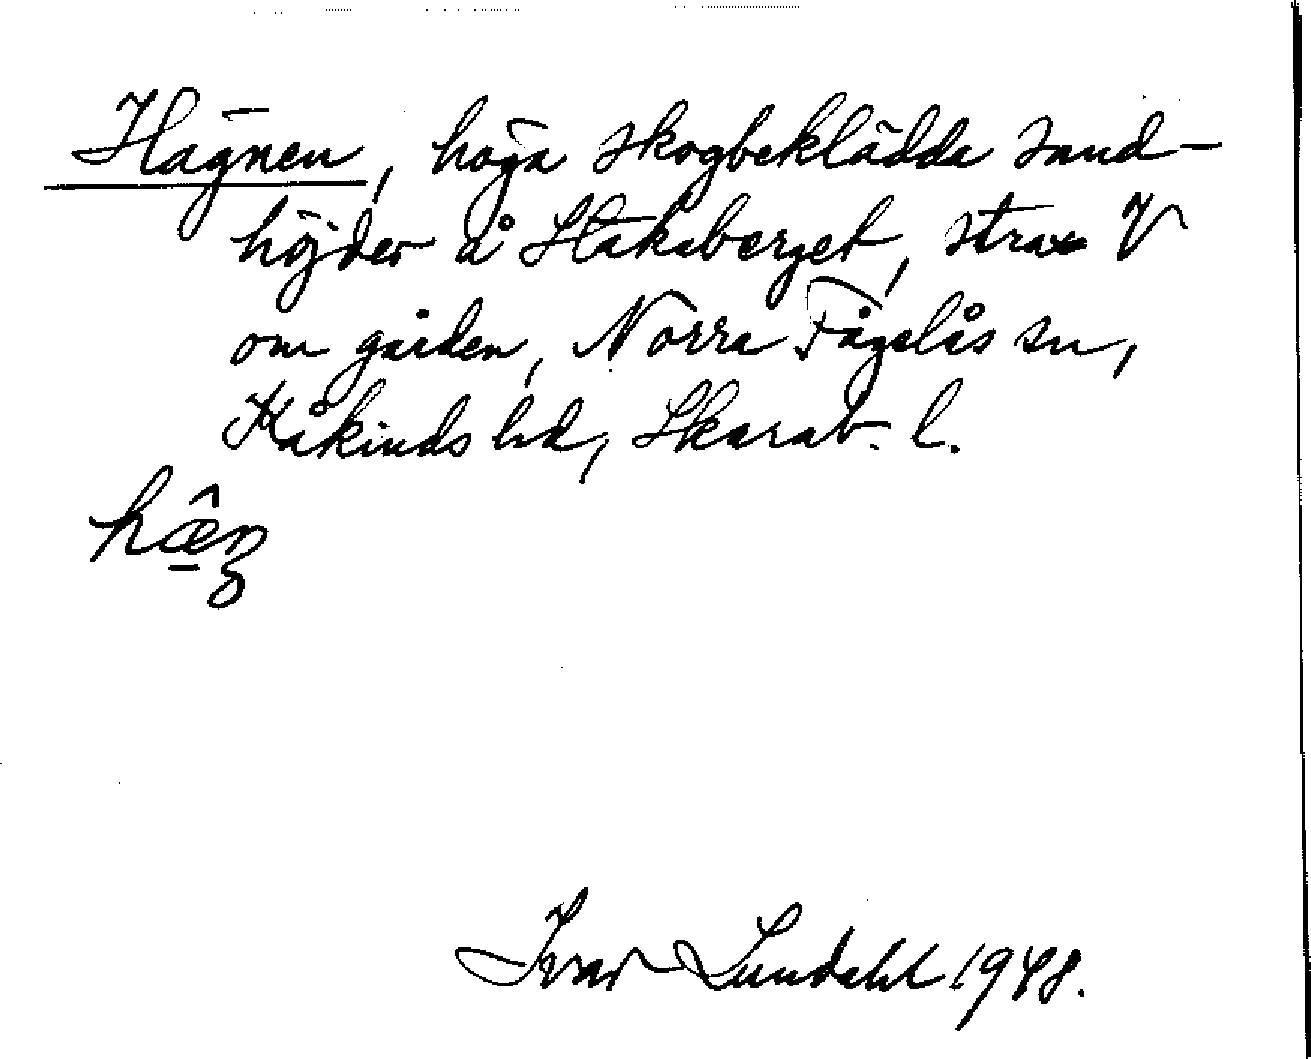 Hägnen, höga skogbeklädda sand-
höjder å Stakaberget, strax V
om gården, Norra Fågelås sn,
Kåkinds hd, Skarab. l.
Ivar Lundahl 1948.